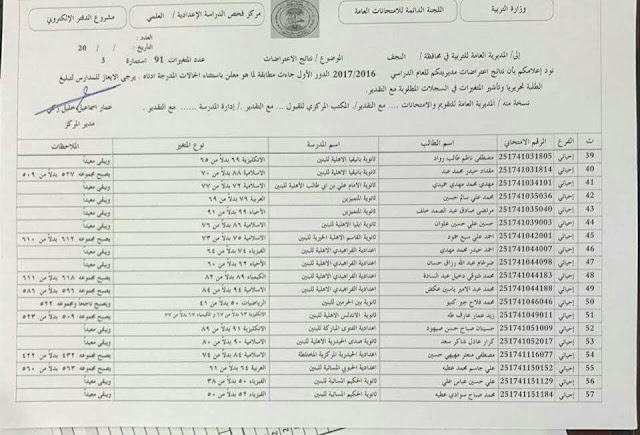 وزارة التربية
اللجنة الدائمة للامتحانات العامة
مركز فحص الدراسة الإعدادية / العلمي
مشروع الدفتر الإلكتروني
العدد :
التاريخ : / / 20
إلى/ المديرية العامة للتربية في محافظة / النجف
الموضوع / نتائج الاعتراضات
عدد المتغيرات 91 استمارة 3
نود إعلامكم بأن نتائج اعتراضات مديريتكم للعام الدراسي 2017/2016 الدور الأول جاءت مطابقة لما هو معلن باستثناء الحالات المدرجة ادناه . يرجى الايعاز للمدارس لتبليغ
الطلبة تحريريا وتأشير المتغيرات في السجلات المطلوبة مع التقدير.
نسخة منه / المديرية العامة للتقويم والامتحانات .... مع التقدير/. المكتب المركزي للقبول ... مع التقدير ./ إدارة المدرسة ..... مع التقدير .
مدير المركز
ت الفرع الرقم الامتحاني اسم الطالب اسم المدرسة نوع المتغير الملاحظات
39 إحيائي 251741031805 مصطفى ناظم طالب رواد ثانوية بانيقيا الاهلية للبنين الانكليزية ٦٩ بدلاً من ٦٥ ويبقى معيداً
40 إحيائي 251741031814 مقداد حيدر محمد عبد ثانوية بانيقيا الاهلية للبنين الاسلامية ٨٨ بدلاً من ٧٠ يصبح مجموعه ٥٢٧ بدلاً من ٥٠٩
41 إحيائي 251741034101 مهدي محمد مهدي حميدي ثانوية الامام علي بن ابي طالب الأهلية للبنين الاسلامية ٧٢ بدلاً من ٧٧ ويبقى معيداً
42 إحيائي 251741035036 محمد علي سالم حسين ثانوية المتميزين العربية ٧٩ بدلاً من ٦٩ ويبقى معيداً
43 إحيائي 251741035040 مرتضى صادق عبد الصمد خلف ثانوية المتميزين الأحياء ٩٩ بدلاً من ٩١ ويبقى معيداً
44 إحيائي 251741039003 حسين علي حسين علوان ثانوية ايليا الاهلية للبنين الاسلامية ٨٦ بدلاً من ٧٦ ويبقى معيداً
45 إحيائي 251741042001 احمد علي سبع حمود ثانوية القاسم الاهلية الخيرية للبنين الاسلامية ٧٥ بدلاً من ٧٣ يصبح مجموعه ٦١٢ بدلاً من ٦١٠
46 إحيائي 251741044007 احمد حيدر محمد مهدي اعدادية الفراهيدي الاهلية للبنين الفيزياء ٧٤ بدلاً من ٦٤ ويبقى معيداً
47 إحيائي 251741044098 ضرغام عبد الله رزاق حسان اعدادية الفراهيدي الاهلية للبنين الأحياء ٦٢ بدلاً من ٦٠ ويبقى معيداً
48 إحيائي 251741044183 محمد شوقي دخيل عبد السادة اعدادية الفراهيدي الاهلية للبنين الكيمياء ٨٩ بدلاً من ٨٢ يصبح مجموعه ٦١٨ بدلاً من ٦١١
49 إحيائي 251741044188 محمد عبد الامير ياسين اعدادية الفراهيدي الاهلية للبنين الاسلامية ٩٤ بدلاً من ٨٤ يصبح مجموعه ٥٩٦ بدلاً من ٥٨٦
50 إحيائي 251741046046 محمد فلاح جبر ثانوية بين الحرمين للبنين الرياضيات ٥٠ بدلاً من ٤١ ويصبح ناجحاً ومجموعه ٥٢٢
51 إحيائي 251741049011 زيد عمار عارف طه ثانوية الاندلس الأهلية للبنين يصبح مجموعه ٥٠٩ بدلاً من ٥٢٣
52 إحيائي 251741051009 حسن صيهود ثانوية الفتوى المباركة للبنين الانكليزية ٩١ بدلاً من ٨٩ ويبقى معيداً
53 إحيائي 251741052017 كرار عادل شاكر سعد ثانوية صدى الحيدرية الاهلية للبنين الاسلامية ٩٠ بدلاً من ٨٠ ويبقى معيداً
54 إحيائي 251741116077 مصطفى حسين اعدادية الحيدرية المركزية المختلطة الاسلامية ٨٤ بدلاً من ٧٤ يصبح مجموعه ٤٣٢ بدلاً من ٤٢٢
55 إحيائي 251741150152 علي جاسم محمد عطيه اعدادية الحبوبي المسائية للبنين العربية ٦٤ بدلاً من ٦١ يصبح مجموعه ٥٦٣ بدلاً من ٥٦٠
56 إحيائي 251741151129 علي حسين عباس علي ثانوية الحكيم المسائية للبنين الفيزياء ٥٠ بدلاً من ٣٨ ويبقى معيداً
57 إحيائي 251741151184 محمد صباح سوادي عطيه ثانوية الحكيم المسائية للبنين الفيزياء ٥٢ بدلاً من ٥٠ ويبقى معيداً